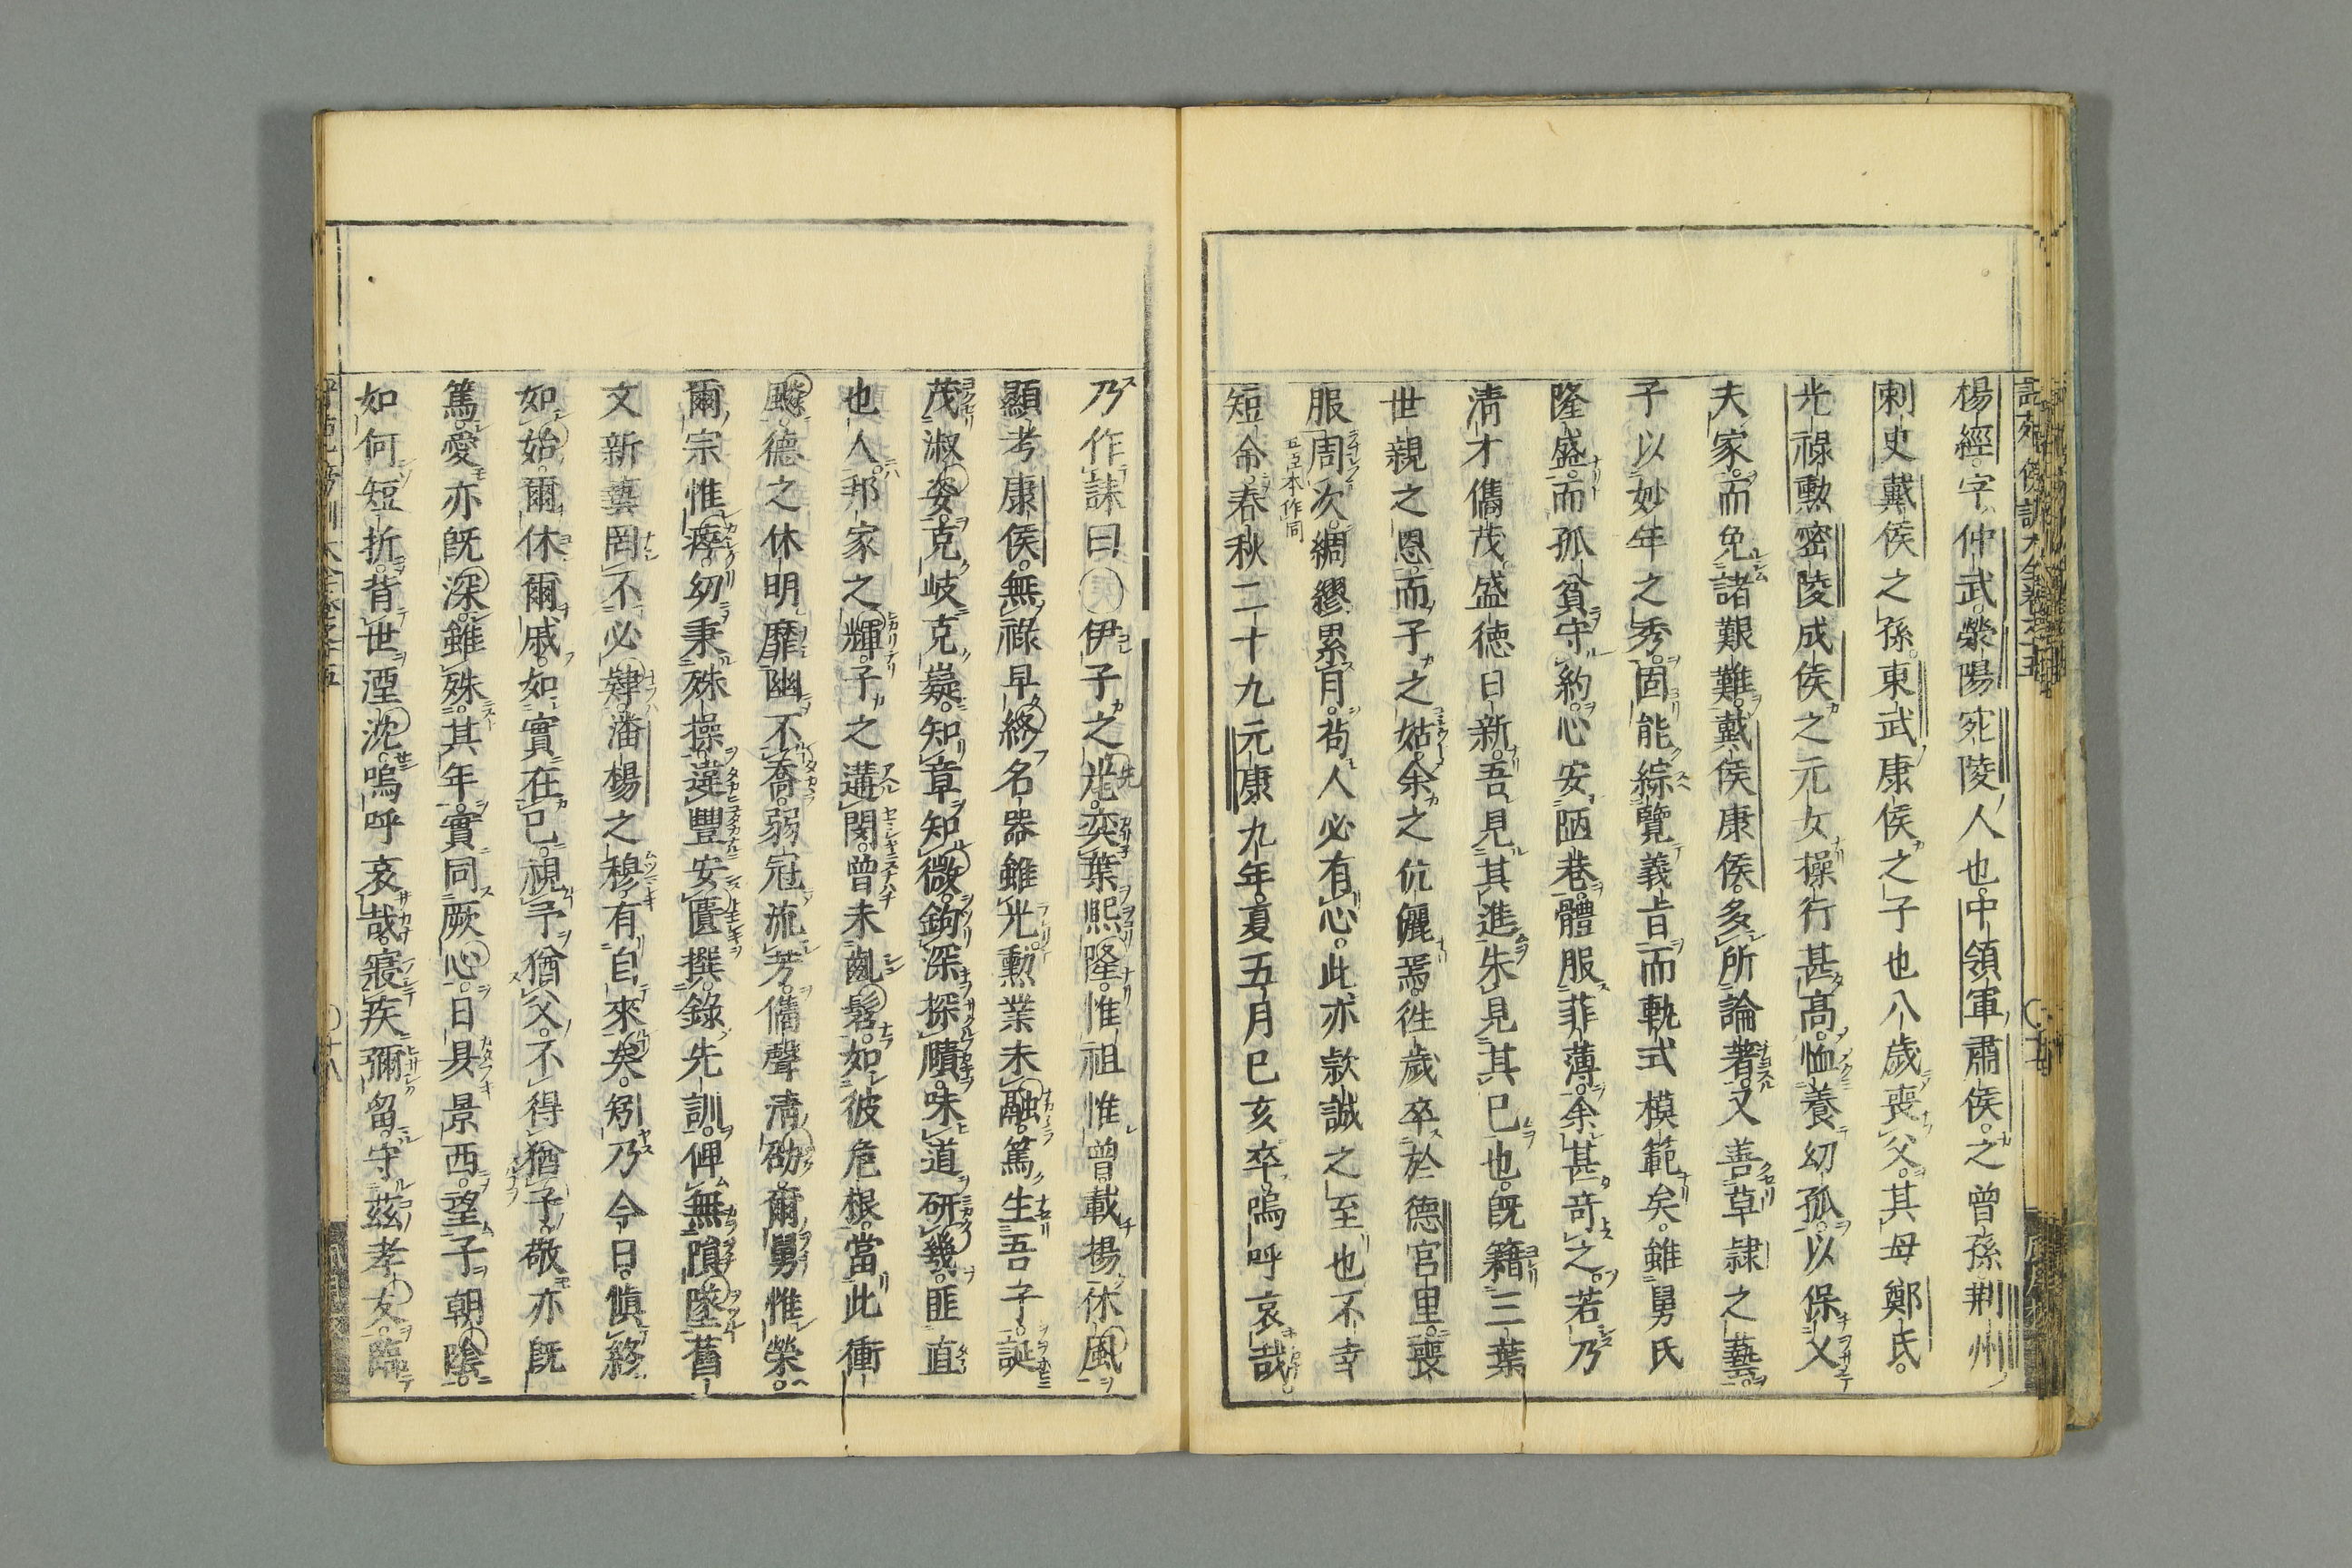 楊經字仲武滎陽宛陵人也中領軍肅侯之曾孫荆州
刺史戴侯之孫東武康侯之子也八歲喪父其母鄭氏
光祿勲密陵成侯之元女操行甚高恤養幼孤以保乂
夫家而免諸艱難戴侯康侯多所論著又善草隷之藝
子以妙年之秀固能綜覽義旨而軌式模範矣雖舅氏
隆盛而孤貧守約心安陋巷體服菲薄余甚竒之若乃
淸才儁茂盛徳日新吾見其進未見其已也旣籍三葉
世親之恩而子之姑余之伉儷焉徃歲卒於德宫里喪
服周次綢繆累月苟人必有心此亦款誠之至也不幸
短命春秋二十九元康九年夏五月巳亥卒嗚呼哀哉
乃作誄曰伊子之先奕葉熈隆惟祖惟曾載揚休風
顯考康侯無祿早終名器雖光勲業未融篤生吾子誕
茂淑姿克岐克嶷知章知微鉤深探賾味道研幾匪直
也人邦家之輝子之遘閔曾未齓髫如彼危根當此衝
飇德之休明靡幽不喬弱冠流芳儁聲淸劭爾舅惟榮
爾宗惟瘁幼秉殊操違豐安匱撰錄先訓俾無隕墜舊
文新藝罔不必肄潘楊之穆有自來矣矧乃今日愼終
如始爾休爾戚如實在己視予猶父不得猶子敬亦旣
篤愛亦旣深雖殊其年實同厥心日昃景西望子朝陰
如何短折背世湮沈嗚呼哀哉寢疾彌留守茲孝友臨